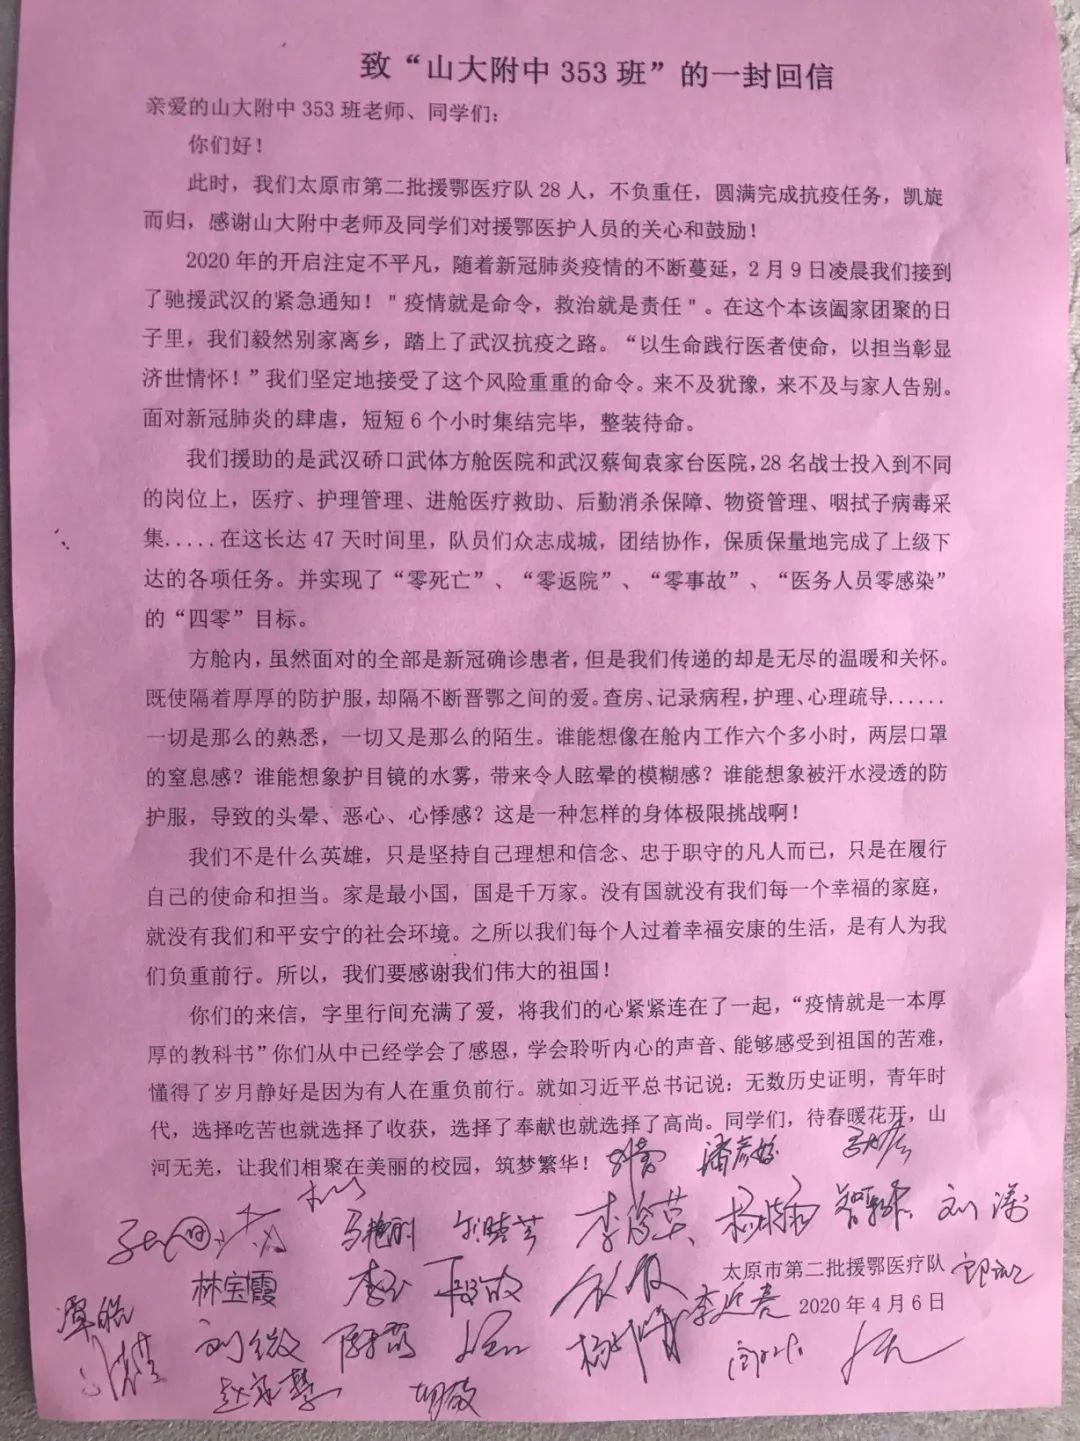 致“山大附中 353 班”的一封回信
亲爱的山大附中 353 班老师、同学们：
你们好！
此时，我们太原市第二批援鄂医疗队 28 人，不负重任，圆满完成抗疫任务，凯旋
而归，感谢山大附中老师及同学们对援鄂医护人员的关心和鼓励！
2020 年的开启注定不平凡，随着新冠肺炎疫情的不断蔓延，2 月 9 日凌晨我们接到
了驰援武汉的紧急通知！"疫情就是命令，救治就是责任"。在这个本该阖家团聚的日
子里，我们毅然别家离乡，踏上了武汉抗疫之路。“以生命践行医者使命，以担当彰显
济世情怀！”我们坚定地接受了这个风险重重的命令。来不及犹豫，来不及与家人告别。
面对新冠肺炎的肆虐，短短 6 个小时集结完毕，整装待命。
我们援助的是武汉硚口武体方舱医院和武汉蔡甸袁家台医院，28 名战士投入到不同
的岗位上，医疗、护理管理、进舱医疗救助、后勤消杀保障、物资管理、咽拭子病毒采
集.....在这长达 47 天时间里，队员们众志成城，团结协作，保质保量地完成了上级下
达的各项任务。并实现了“零死亡”、“零返院”、“零事故”、“医务人员零感染”
的“四零”目标。
方舱内，虽然面对的全部是新冠确诊患者，但是我们传递的却是无尽的温暖和关怀。
既使隔着厚厚的防护服，却隔不断晋鄂之间的爱。查房、记录病程，护理、心理疏导......
一切是那么的熟悉，一切又是那么的陌生。谁能想像在舱内工作六个多小时，两层口罩
的窒息感？谁能想象护目镜的水雾，带来令人眩晕的模糊感？谁能想象被汗水浸透的防
护服，导致的头晕、恶心、心悸感？这是一种怎样的身体极限挑战啊！
我们不是什么英雄，只是坚持自己理想和信念、忠于职守的凡人而已，只是在履行
自己的使命和担当。家是最小国，国是千万家。没有国就没有我们每一个幸福的家庭，
就没有我们和平安宁的社会环境。之所以我们每个人过着幸福安康的生活，是有人为我
们负重前行。所以，我们要感谢我们伟大的祖国！
你们的来信，字里行间充满了爱，将我们的心紧紧连在了一起，“疫情就是一本厚
厚的教科书”你们从中已经学会了感恩，学会聆听内心的声音、能够感受到祖国的苦难，
懂得了岁月静好是因为有人在重负前行。就如习近平总书记说：无数历史证明，青年时
代，选择吃苦也就选择了收获，选择了奉献也就选择了高尚。同学们，待春暖花开，山
河无恙，让我们相聚在美丽的校园，筑梦繁华！
马艳刚 刘涛
太原市第二批援鄂医疗队
林宝霞
2020 年 4 月 6 日
刘微
胡敏